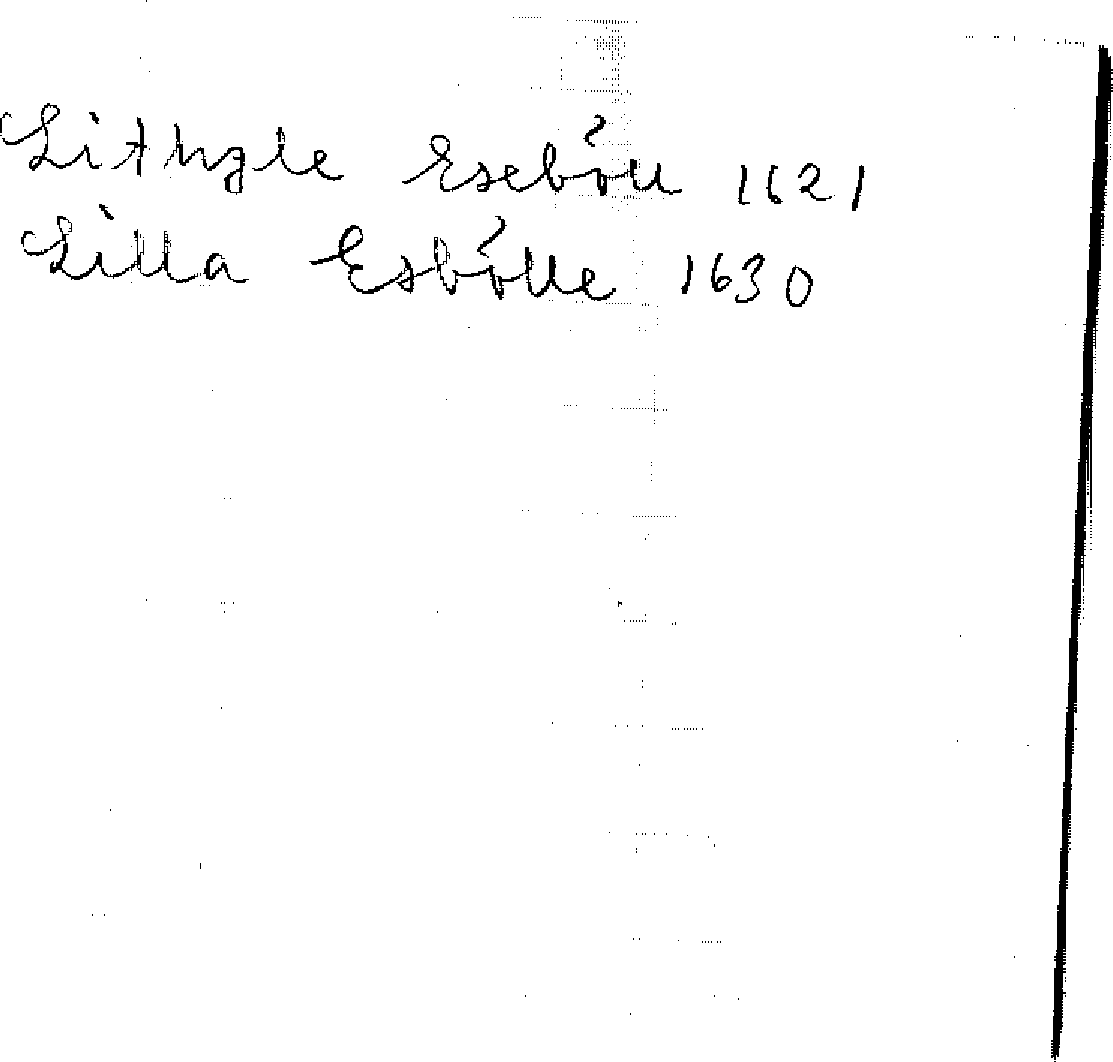 Lithzle Esebóll 1621
Lilla Esbólle 1630